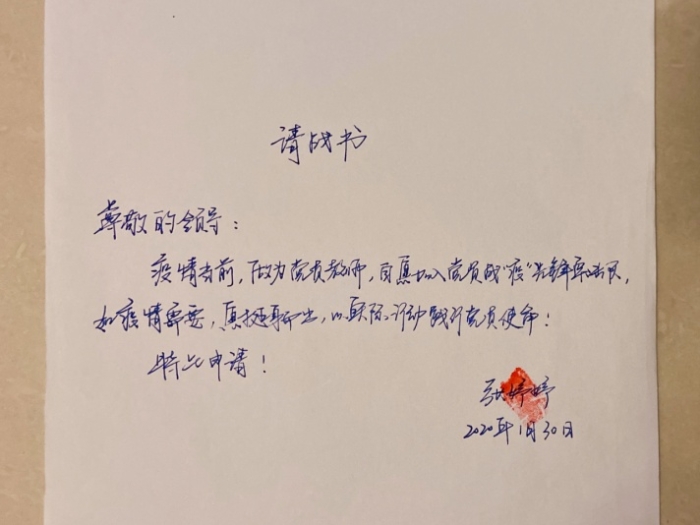 请战书
尊敬的领导:
疫情当前,做为党员教师,自愿加入党员战“疫”先锋
如疫情需要,愿挺身而出,以实际行动践行党员使命!
特此申请!
张婷婷
2020年1月30日